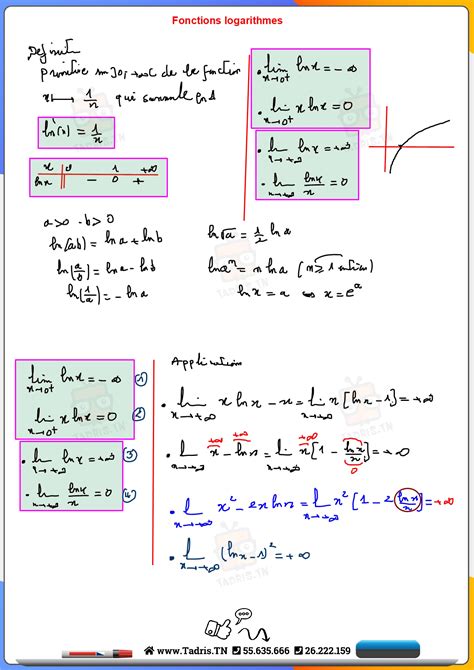 Fonctions logarithmes
Definition
primitive sur ]0,+∞[ de la fonction
x ⟼ 1/x qui s'annule en 1
ln'(x) = 1/x
x 0 1 +∞
ln x − 0 +
• lim x→0⁺ ln x = −∞
• lim x→0⁺ x ln x = 0
• lim x→+∞ ln x = +∞
• lim x→+∞ ln x / x = 0
a>0 · b>0
ln(ab) = ln a + ln b
ln(a/b) = ln a − ln b
ln(1/a) = − ln a
ln √a = 1/2 ln a
ln aⁿ = n ln a (n ≥ 1 entier)
ln x = a ⇔ x = eᵃ
lim x→0⁺ ln x = −∞ (1)
lim x→0⁺ x ln x = 0 (2)
• lim x→+∞ ln x = +∞ (3)
• lim x→+∞ ln x / x = 0 (4)
Application
• lim x→+∞ x ln x − x = lim x→+∞ x [ln x − 1] = +∞
• lim x→+∞ x − ln x = lim x→+∞ x [1 − ln x / x] = +∞
+∞ +∞ +∞ 0
• lim x→+∞ x² − 2x ln x = lim x→+∞ x² [1 − 2 ln x / x] = +∞
• lim x→+∞ (ln x − 1)² = +∞
TADRIS.TN
www.Tadris.TN 55.635.666 26.222.159